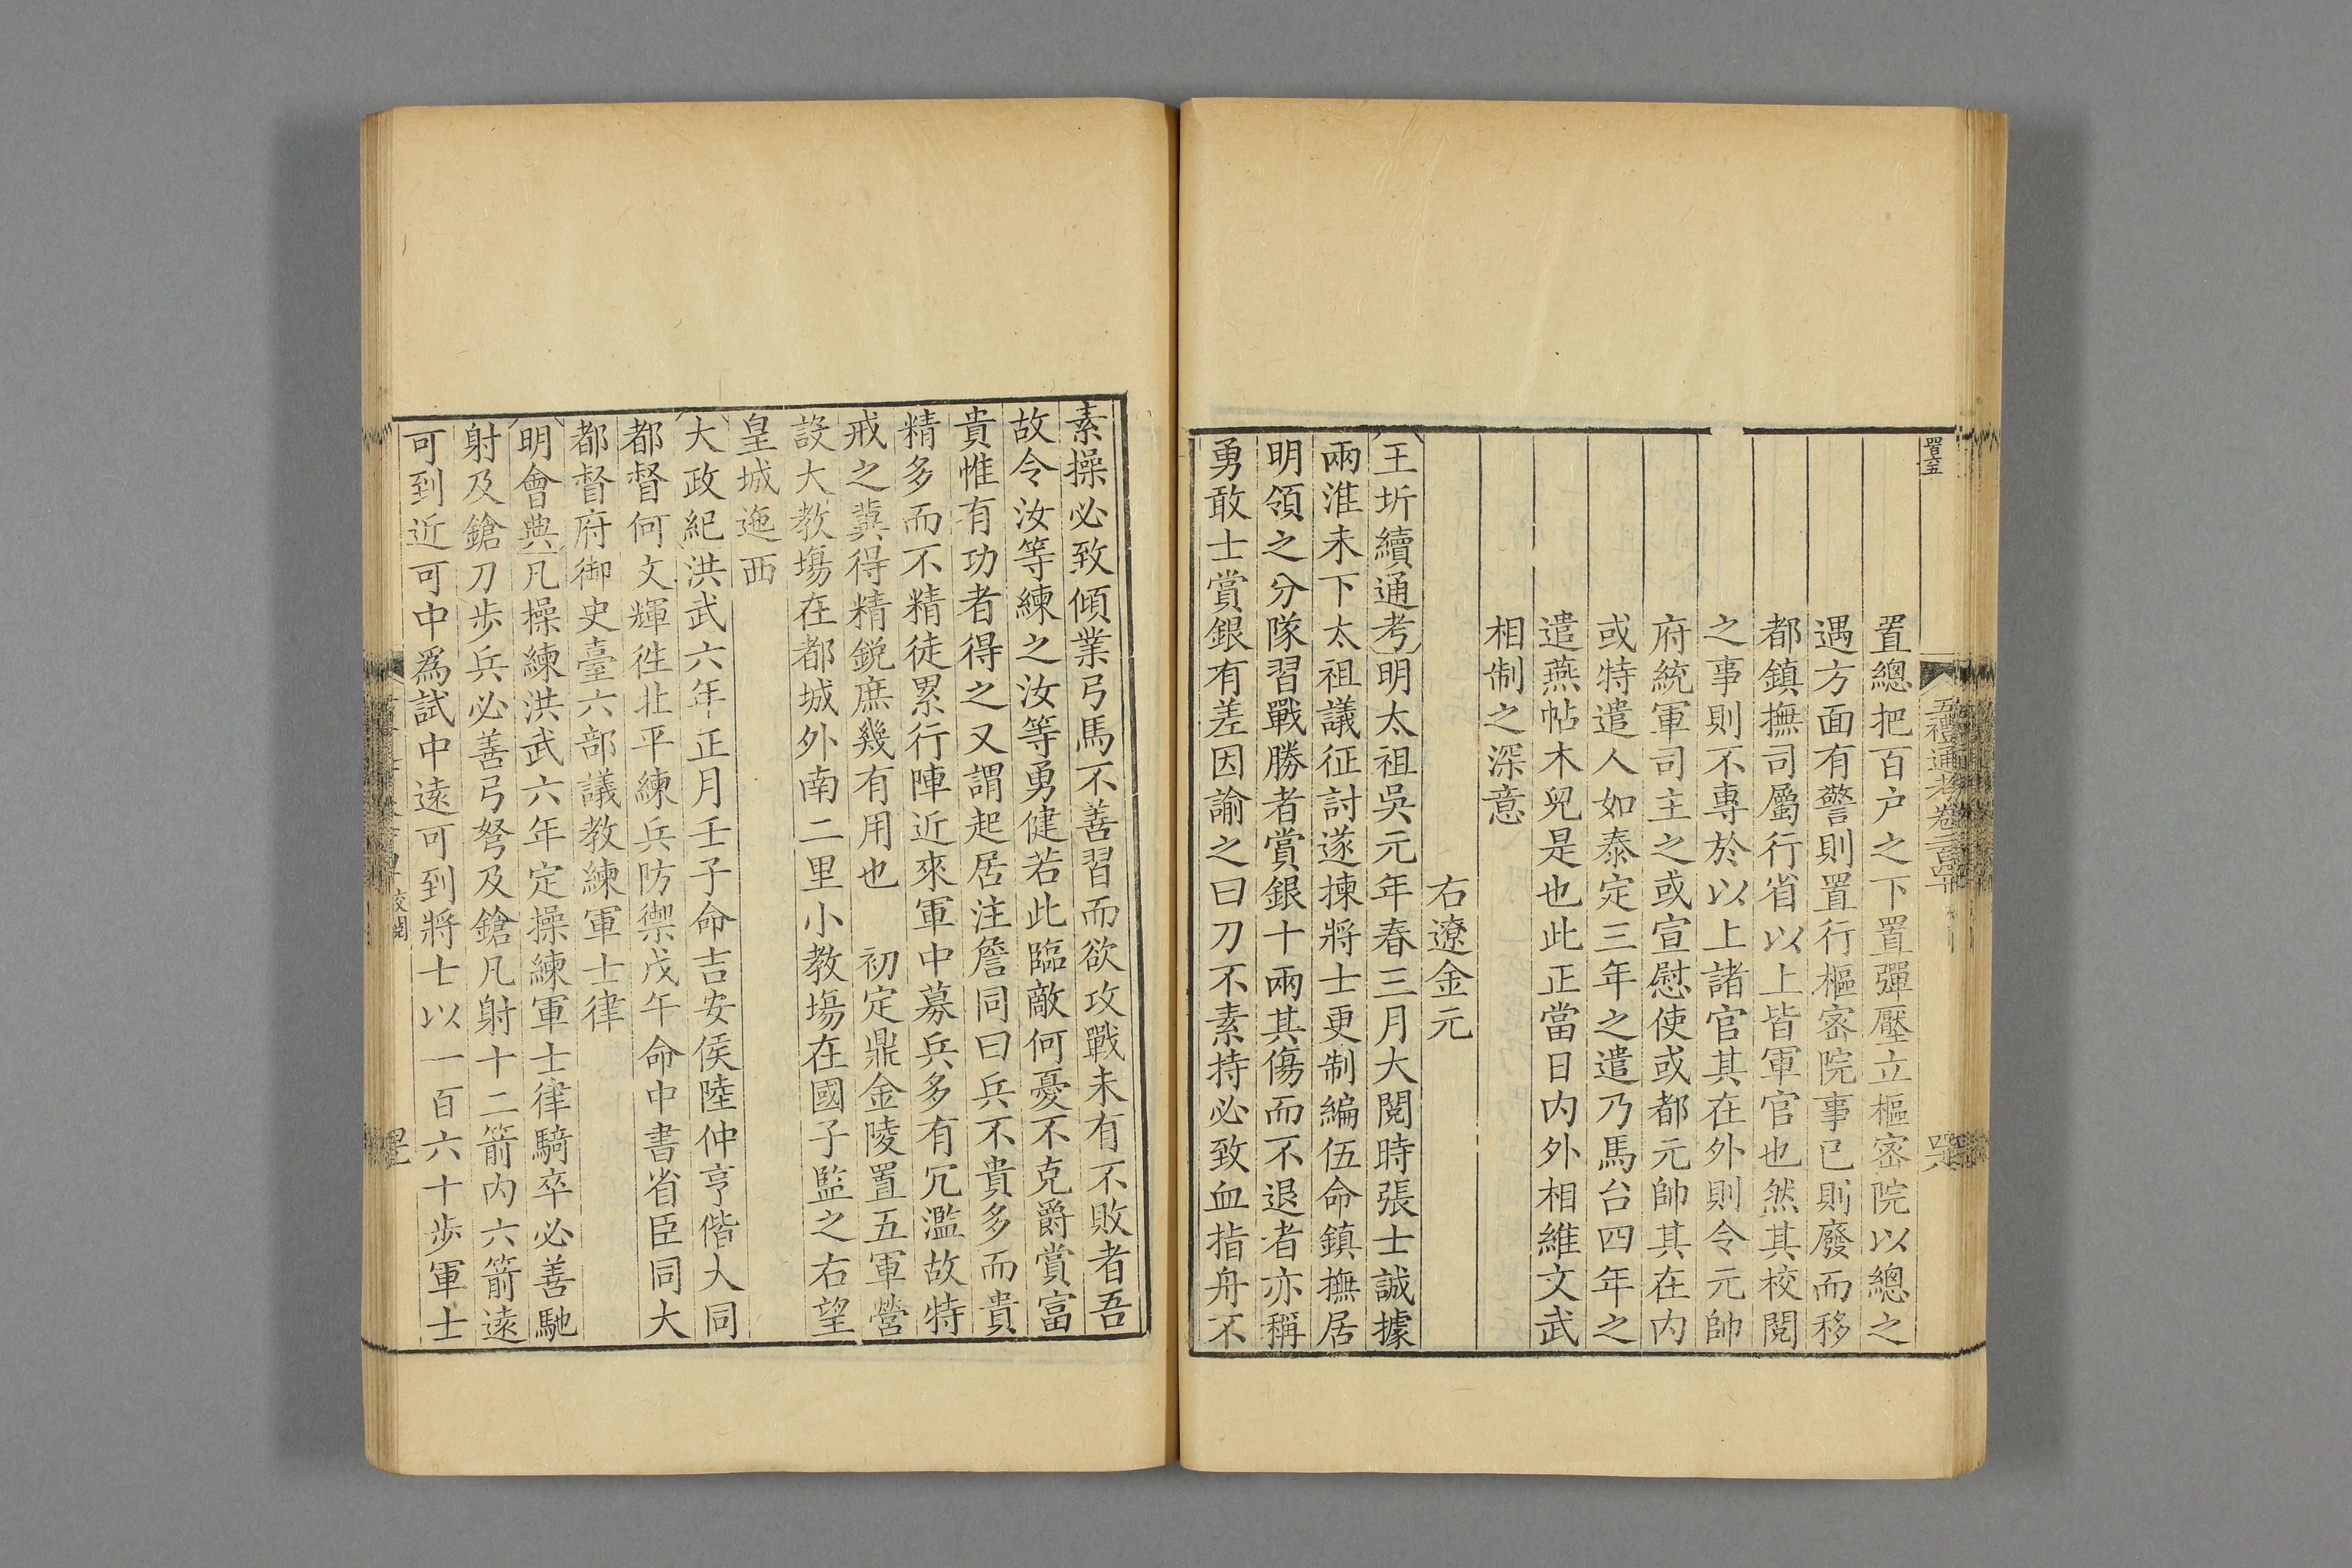 五禮通考卷二百四十
置總把百户之下置彈壓立樞密院以總之
遇方面有警則置行樞密院事已則廢而移
都鎮撫司屬行省以上皆軍官也然其校閱
之事則不專於以上諸官其在外則令元帥
府統軍司主之或宣慰使或都元帥其在內
或特遣人如泰定三年之遣乃馬台四年之
遣燕帖木兒是也此正當日内外相維文武
相制之深意
右遼金元
王圻續通考明太祖吳元年春三月大閱時張士誠據
兩淮未下太祖議征討遂揀將士更制編伍命鎮撫居
明領之分隊習戰勝者賞銀十兩其傷而不退者亦稱
勇敢士賞銀有差因諭之曰刀不素持必致血指舟不
素操必致傾業弓馬不善習而欲攻戰未有不敗者吾
故令汝等練之汝等勇健若此臨敵何憂不克爵賞富
貴惟有功者得之又謂起居注詹同曰兵不貴多而貴
精多而不精徒累行陣近來軍中募兵多有冗濫故特
戒之冀得精鋭庶幾有用也 初定鼎金陵置五軍營
設大教塲在都城外南二里小教塲在國子監之右望
皇城迤西
大政紀洪武六年正月壬子命吉安侯陸仲亨偕大同
都督何文輝徃北平練兵防禦戊午命中書省臣同大
都督府御史臺六部議教練軍士律
明會典凡操練洪武六年定操練軍士律騎卒必善馳
射及鎗刀歩兵必善弓弩及鎗凡射十二箭内六箭遠
可到近可中爲試中遠可到將士以一百六十歩軍士
校閲